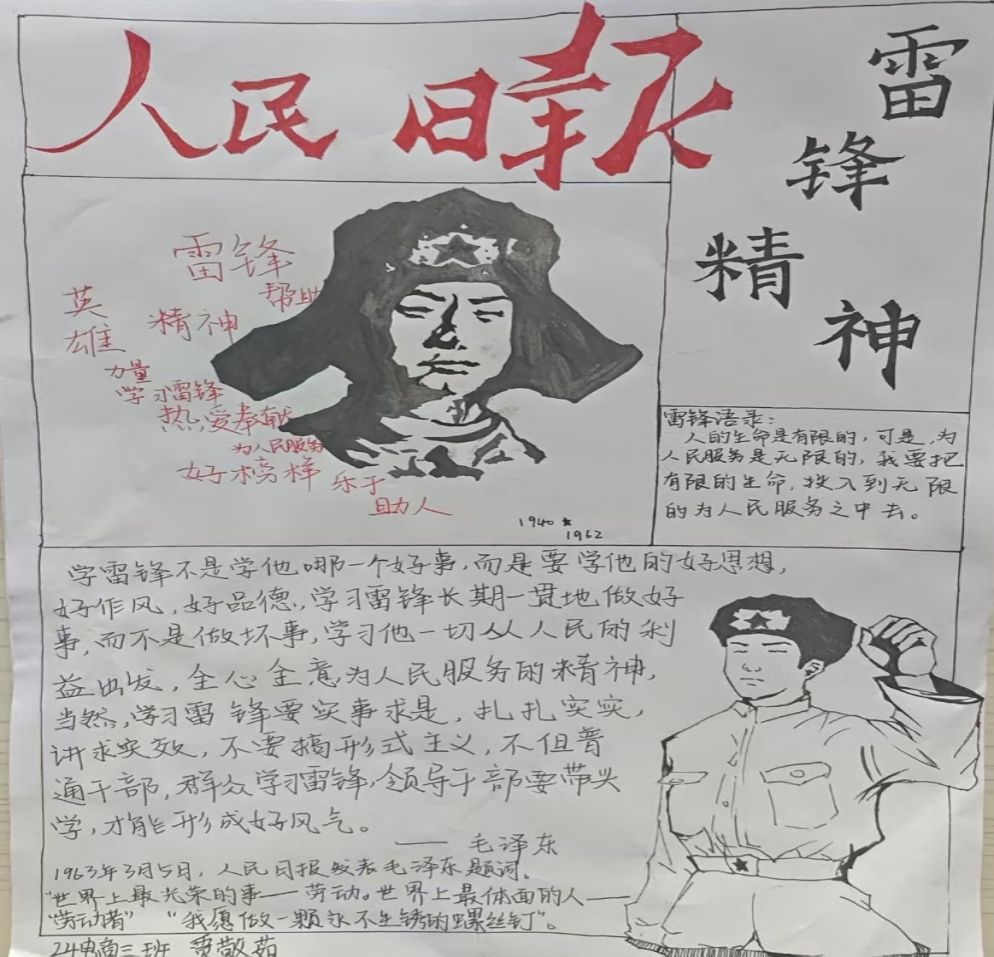 人民日報
雷
锋
精
神
雷锋
帮助
英
雄
精神
力量
学习雷锋
热爱奉献
为人民服务
好榜样
乐于
助人
1940
1962
雷锋语录：
人的生命是有限的，可是，为
人民服务是无限的，我要把
有限的生命，投入到无限
的为人民服务之中去。
学雷锋不是学他哪一个好事，而是要学他的好思想，
好作风，好品德，学习雷锋长期一贯地做好
事，而不是做坏事，学习他一切从人民的利
益出发，全心全意为人民服务的精神，
当然，学习雷锋要实事求是，扎扎实实，
讲求实效，不要搞形式主义，不但普
通干部，群众学习雷锋，领导干部要带头
学，才能形成好风气。
——毛泽东
1963年3月5日，人民日报发表毛泽东题词。
“世界上最光荣的事——劳动。世界上最体面的人——
“劳动者” “我愿做一颗永不生锈的螺丝钉”。
24电商三班 贾敬茹